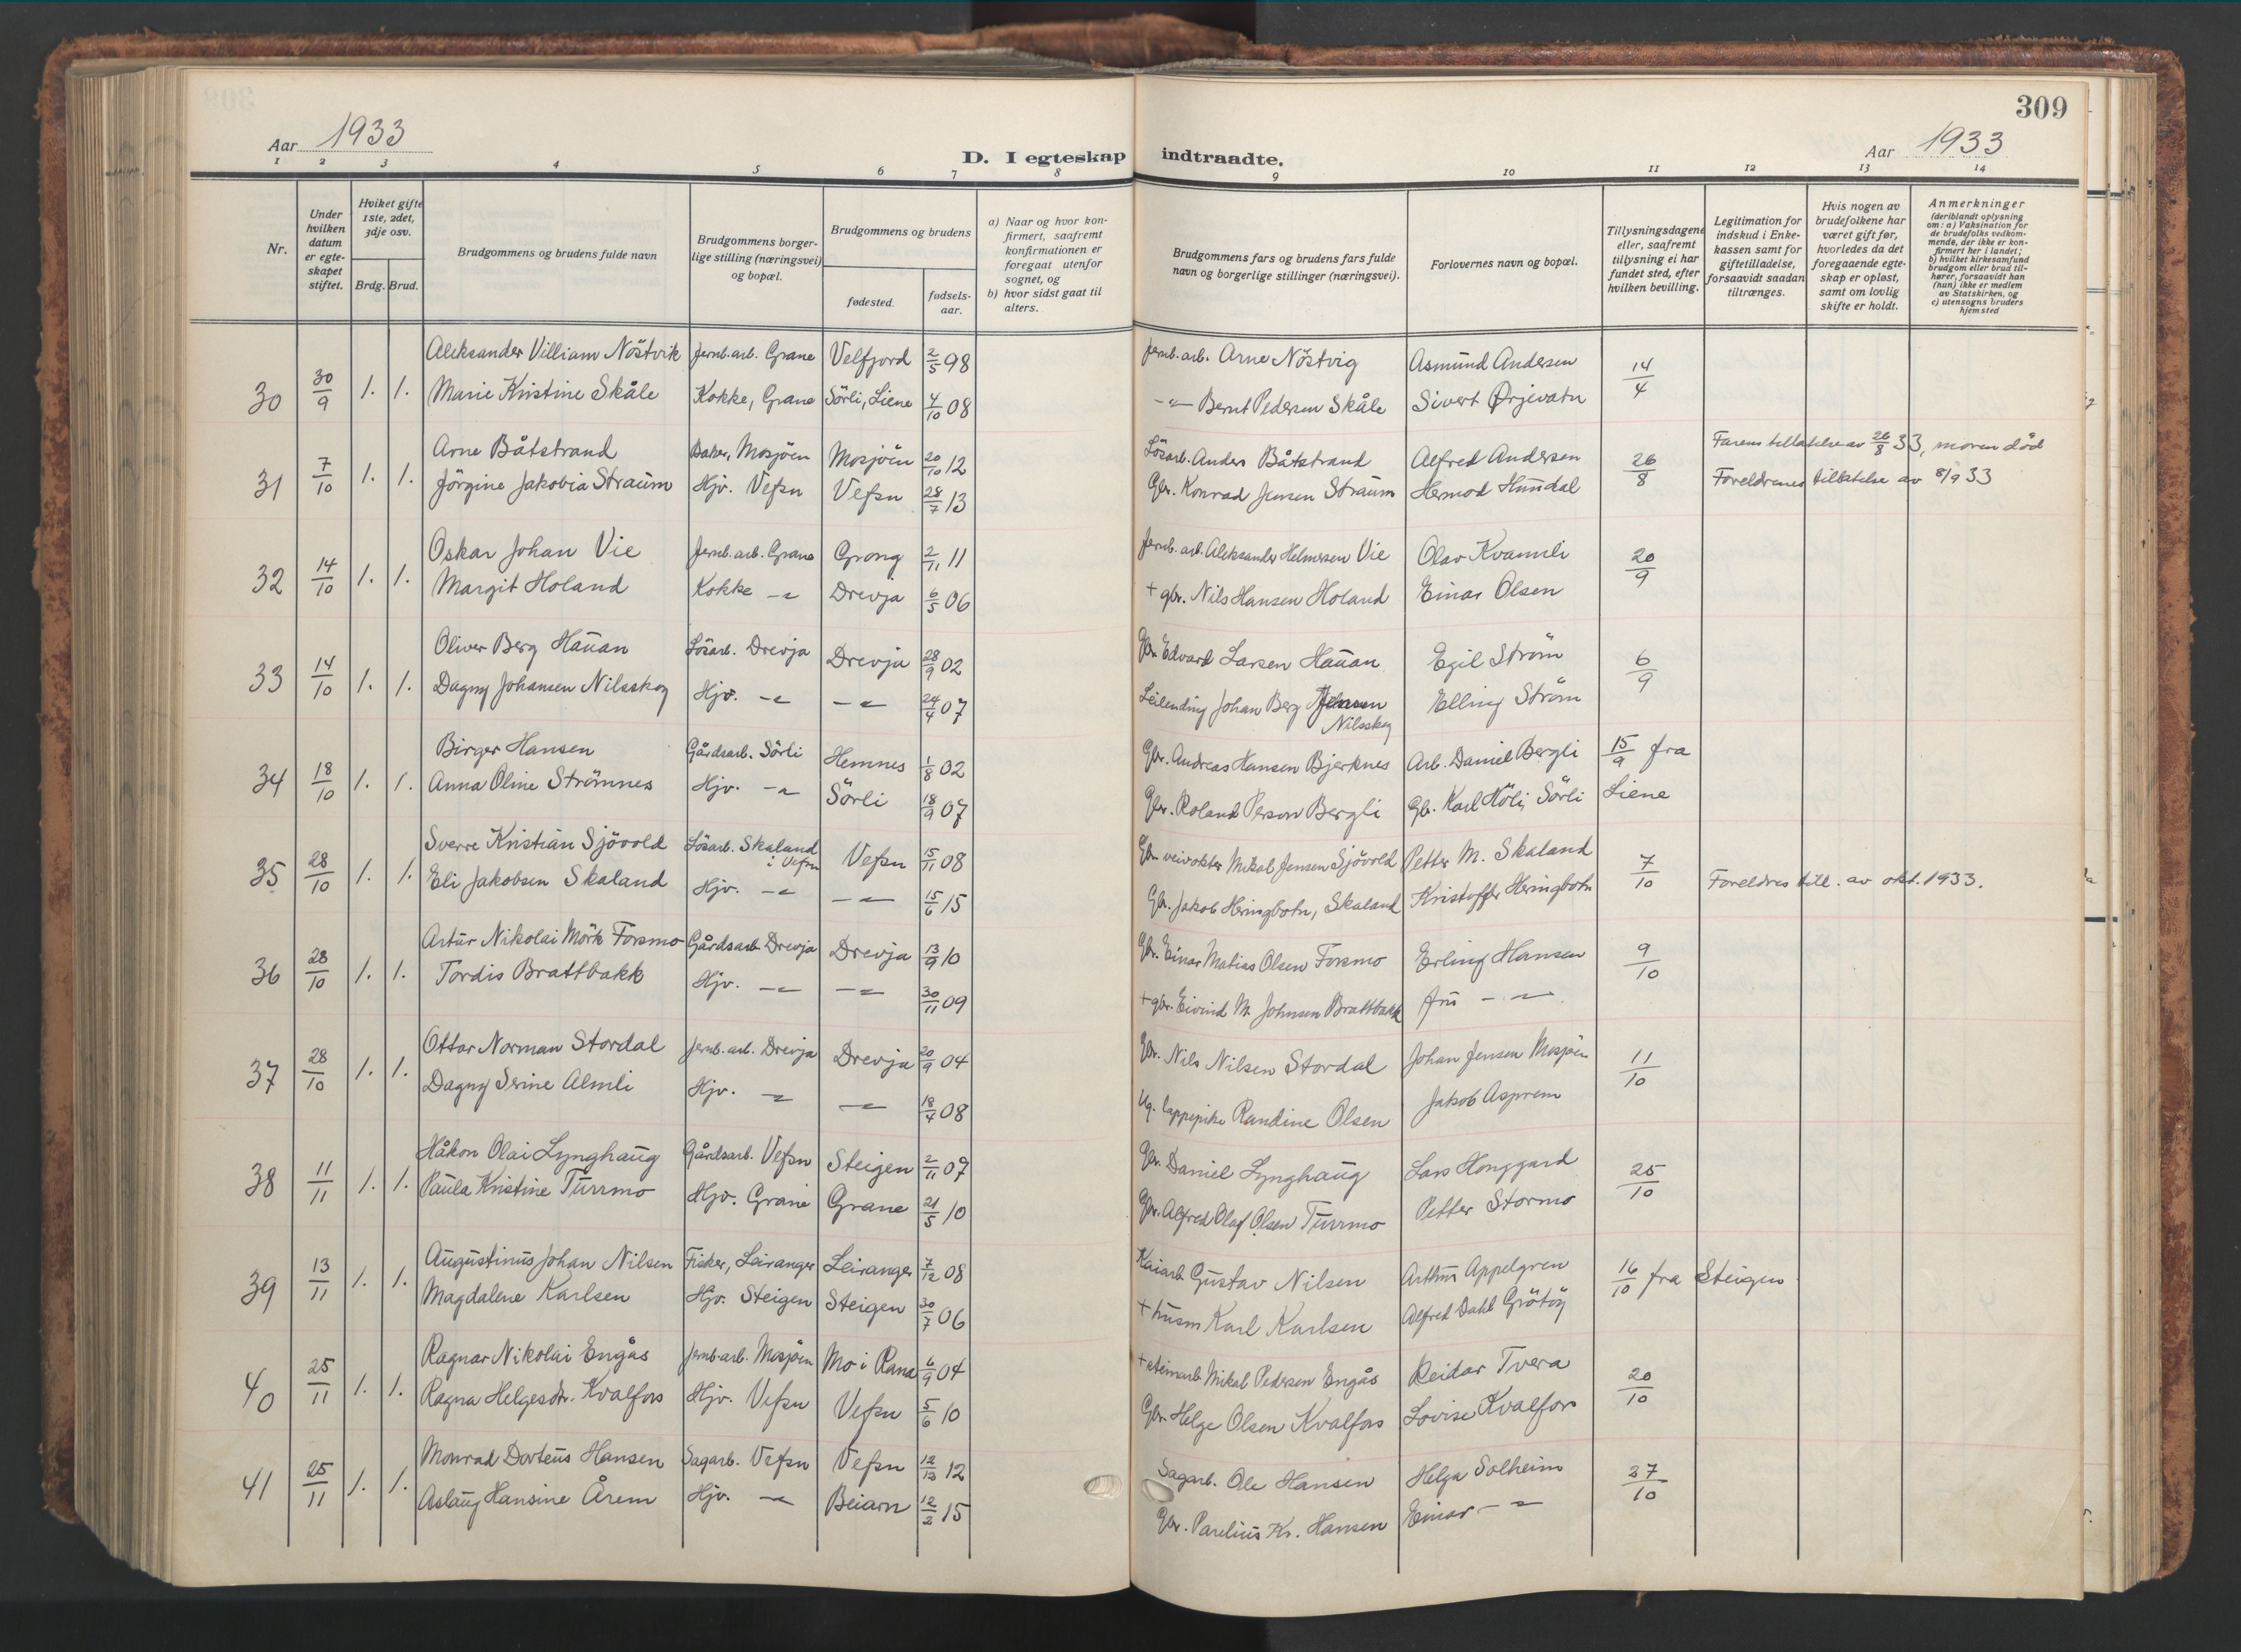 309
Aar 1933
D. I egteskap indtraadte.
Aar 1933
1 2 3 4 5 6 7 8 9 10 11 12 13 14
Nr.
Under hvilken datum er egteskapet stiftet.
Hviket gifte 1ste, 2det, 3dje osv.
Brdg. Brud.
Brudgommens og brudens fulde navn
Brudgommens borgerlige stilling (næringsvei) og bopæl.
Brudgommens og brudens
fødested.
fødselsaar.
a) Naar og hvor konfirmert, saafremt konfirmationen er foregaat utenfor sognet, og
b) hvor sidst gaat til alters.
Brudgommens fars og brudens fars fulde navn og borgerlige stillinger (næringsvei).
Forlovernes navn og bopæl.
Tillysningsdagene eller, saafremt tillysning ei har fundet sted, efter hvilken bevilling.
Legitimation for indskud i Enkekassen samt for giftetilladelse, forsaavidt saadan tiltrænges.
Hvis nogen av brudefolkene har været gift før, hvorledes da det foregaaende egteskap er opløst, samt om lovlig skifte er holdt.
Anmerkninger (deriblandt oplysning om: a) Vaksination for de brudefolks vedkommende, der ikke er konfirmert her i landet; b) hvilket kirkesamfund brudgom eller brud tilhører, forsaavidt han (hun) ikke er medlem av Statskirken, og c) utensogns bruders hjemsted
30 30/9 1. 1. Aleksander Villiam Nöstvik Jernb.arb. Grane Velfjord 2/5 98 Jernb.arb. Arne Nöstvig Asmund Andersen 14/4
Marie Kristine Skåle Kokke, Grane Sörli, Liene 4/10 08 -"- Bernt Pedersen Skåle Sivert Ørjevatn
31 7/10 1. 1. Arne Båtstrand Baker, Mosjöen Mosjöen 20/10 12 Lösarb. Anders Båtstrand Alfred Andersen 26/8 Farens tillatelse av 26/8 33, moren död
Jörgine Jakobia Straum Hjv. Vefsn Vefsn 28/7 13 Gbr. Konrad Jensen Straum Hermod Hundal Foreldrenes tillatelse av 8/9 33
32 14/10 1. 1. Oskar Johan Vie Jernb.arb. Grane Grong 2/11 11 Jernb.arb. Aleksander Helmersen Vie Olav Kvamli 20/9
Margit Holand Kokke -"- Drevja 6/5 06 + gbr. Nils Hansen Holand Einar Olsen
33 14/10 1. 1. Oliver Berg Hauan Lösarb. Drevja Drevja 28/9 02 Gbr. Edvard Larsen Hauan Egil Ström 6/9
Dagny Johansen Nilsskog Hjv. -"- -"- 24/4 07 Leilending Johan Berg Jensen Nilsskog Elling Ström
34 18/10 1. 1. Birger Hansen Gårdsarb. Sörli Hemnes 1/8 02 Gbr. Andreas Hansen Bjerknes Arb. Daniel Bergli 15/9 fra
Anna Oline Strömnes Hjv. -"- Sörli 18/9 07 Gbr. Roland Person Bergli Gb. Karl Holi, Sörli Liene
35 28/10 1. 1. Sverre Kristian Sjövold Lösarb. Skaland i Vefsn Vefsn 15/11 08 Gbr. veivokter Mikal Jensen Sjövold Petter M. Skaland 7/10
Eli Jakobsen Skaland Hjv. -"- -"- 15/6 15 Gbr. Jakob Heringbotn, Skaland Kristoffer Heringbotn Foreldres till. av okt. 1933.
36 28/10 1. 1. Artur Nikolai Mörk Forsmo Gårdsarb Drevja Drevja 13/9 10 Gbr. Einar Matias Olsen Forsmo Erling Hansen 9/10
Tordis Brattbakk Hjv. -"- -"- 30/11 09 + gbr. Eivind M. Johnsen Brattbakk fru -"-
37 28/10 1. 1. Ottar Norman Stordal Jernb.arb. Drevja Drevja 20/9 04 Gbr. Nils Nilsen Stordal Johan Jensen Mosjöen 11/10
Dagny Serine Almli Hjv. -"- -"- 18/4 08 Ug. lappepike Randine Olsen Jakob Asprem
38 11/11 1. 1. Håkon Olai Lynghaug Gårdsarb. Vefsn Steigen 2/11 07 Gbr. Daniel Lynghaug Lars Honggard 25/10
Paula Kristine Turrmo Hjv. Grane Grane 21/5 10 Gbr. Alfred Olaf Olsen Turrmo Petter Stormo
39 13/11 1. 1. Augustinus Johan Nilsen Fisker, Leiranger Leiranger 7/12 08 Kaiarb Gustav Nilsen Arthur Appelgren 16/10 fra Steigen
Magdalene Karlsen Hjv. Steigen Steigen 30/7 06 + husm Karl Karlsen Alfred Dahl Grötöy
40 25/11 1. 1. Ragnar Nikolai Engås Jernb.arb. Mosjöen Mo i Rana 6/9 04 + steinarb Mikal Pedersen Engås Reidar Tvera 20/10
Ragna Helgesdtr. Kvalfors Hjv. Vefsn Vefsn 5/6 10 Gbr. Helge Olsen Kvalfors Lovise Kvalfors
41 25/11 1. 1. Monrad Dorteus Hansen Sagarb. Vefsn Vefsn 12/12 12 Sagarb. Ole Hansen Helga Solheim 27/10
Aslaug Hansine Årem Hjv. -"- Beiarn 12/2 15 Gbr. Parelius Kr. Hansen Einar -"-